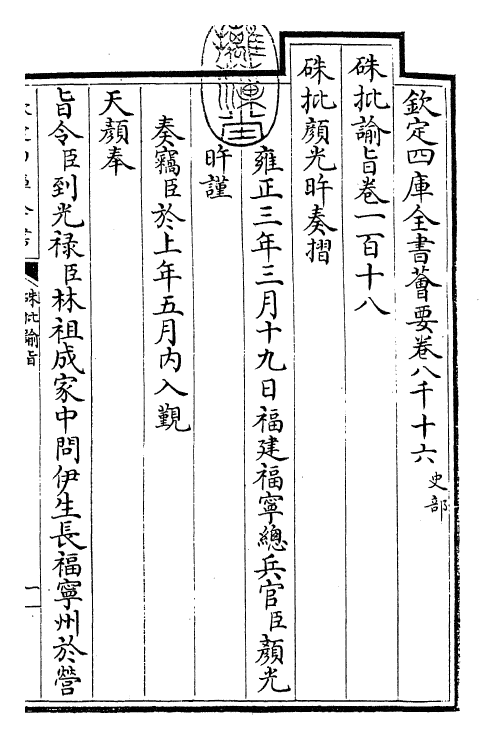 欽定四庫全書薈要卷八千十六 史部
硃批諭旨卷一百十八
硃批顏光旿奏摺
雍正三年三月十九日福建福寧總兵官臣顏光
旿謹
奏竊臣於上年五月內入覲
天顏奉
旨令臣到光祿臣林祖成家中問伊生長福寧州於營
硃批諭旨
一